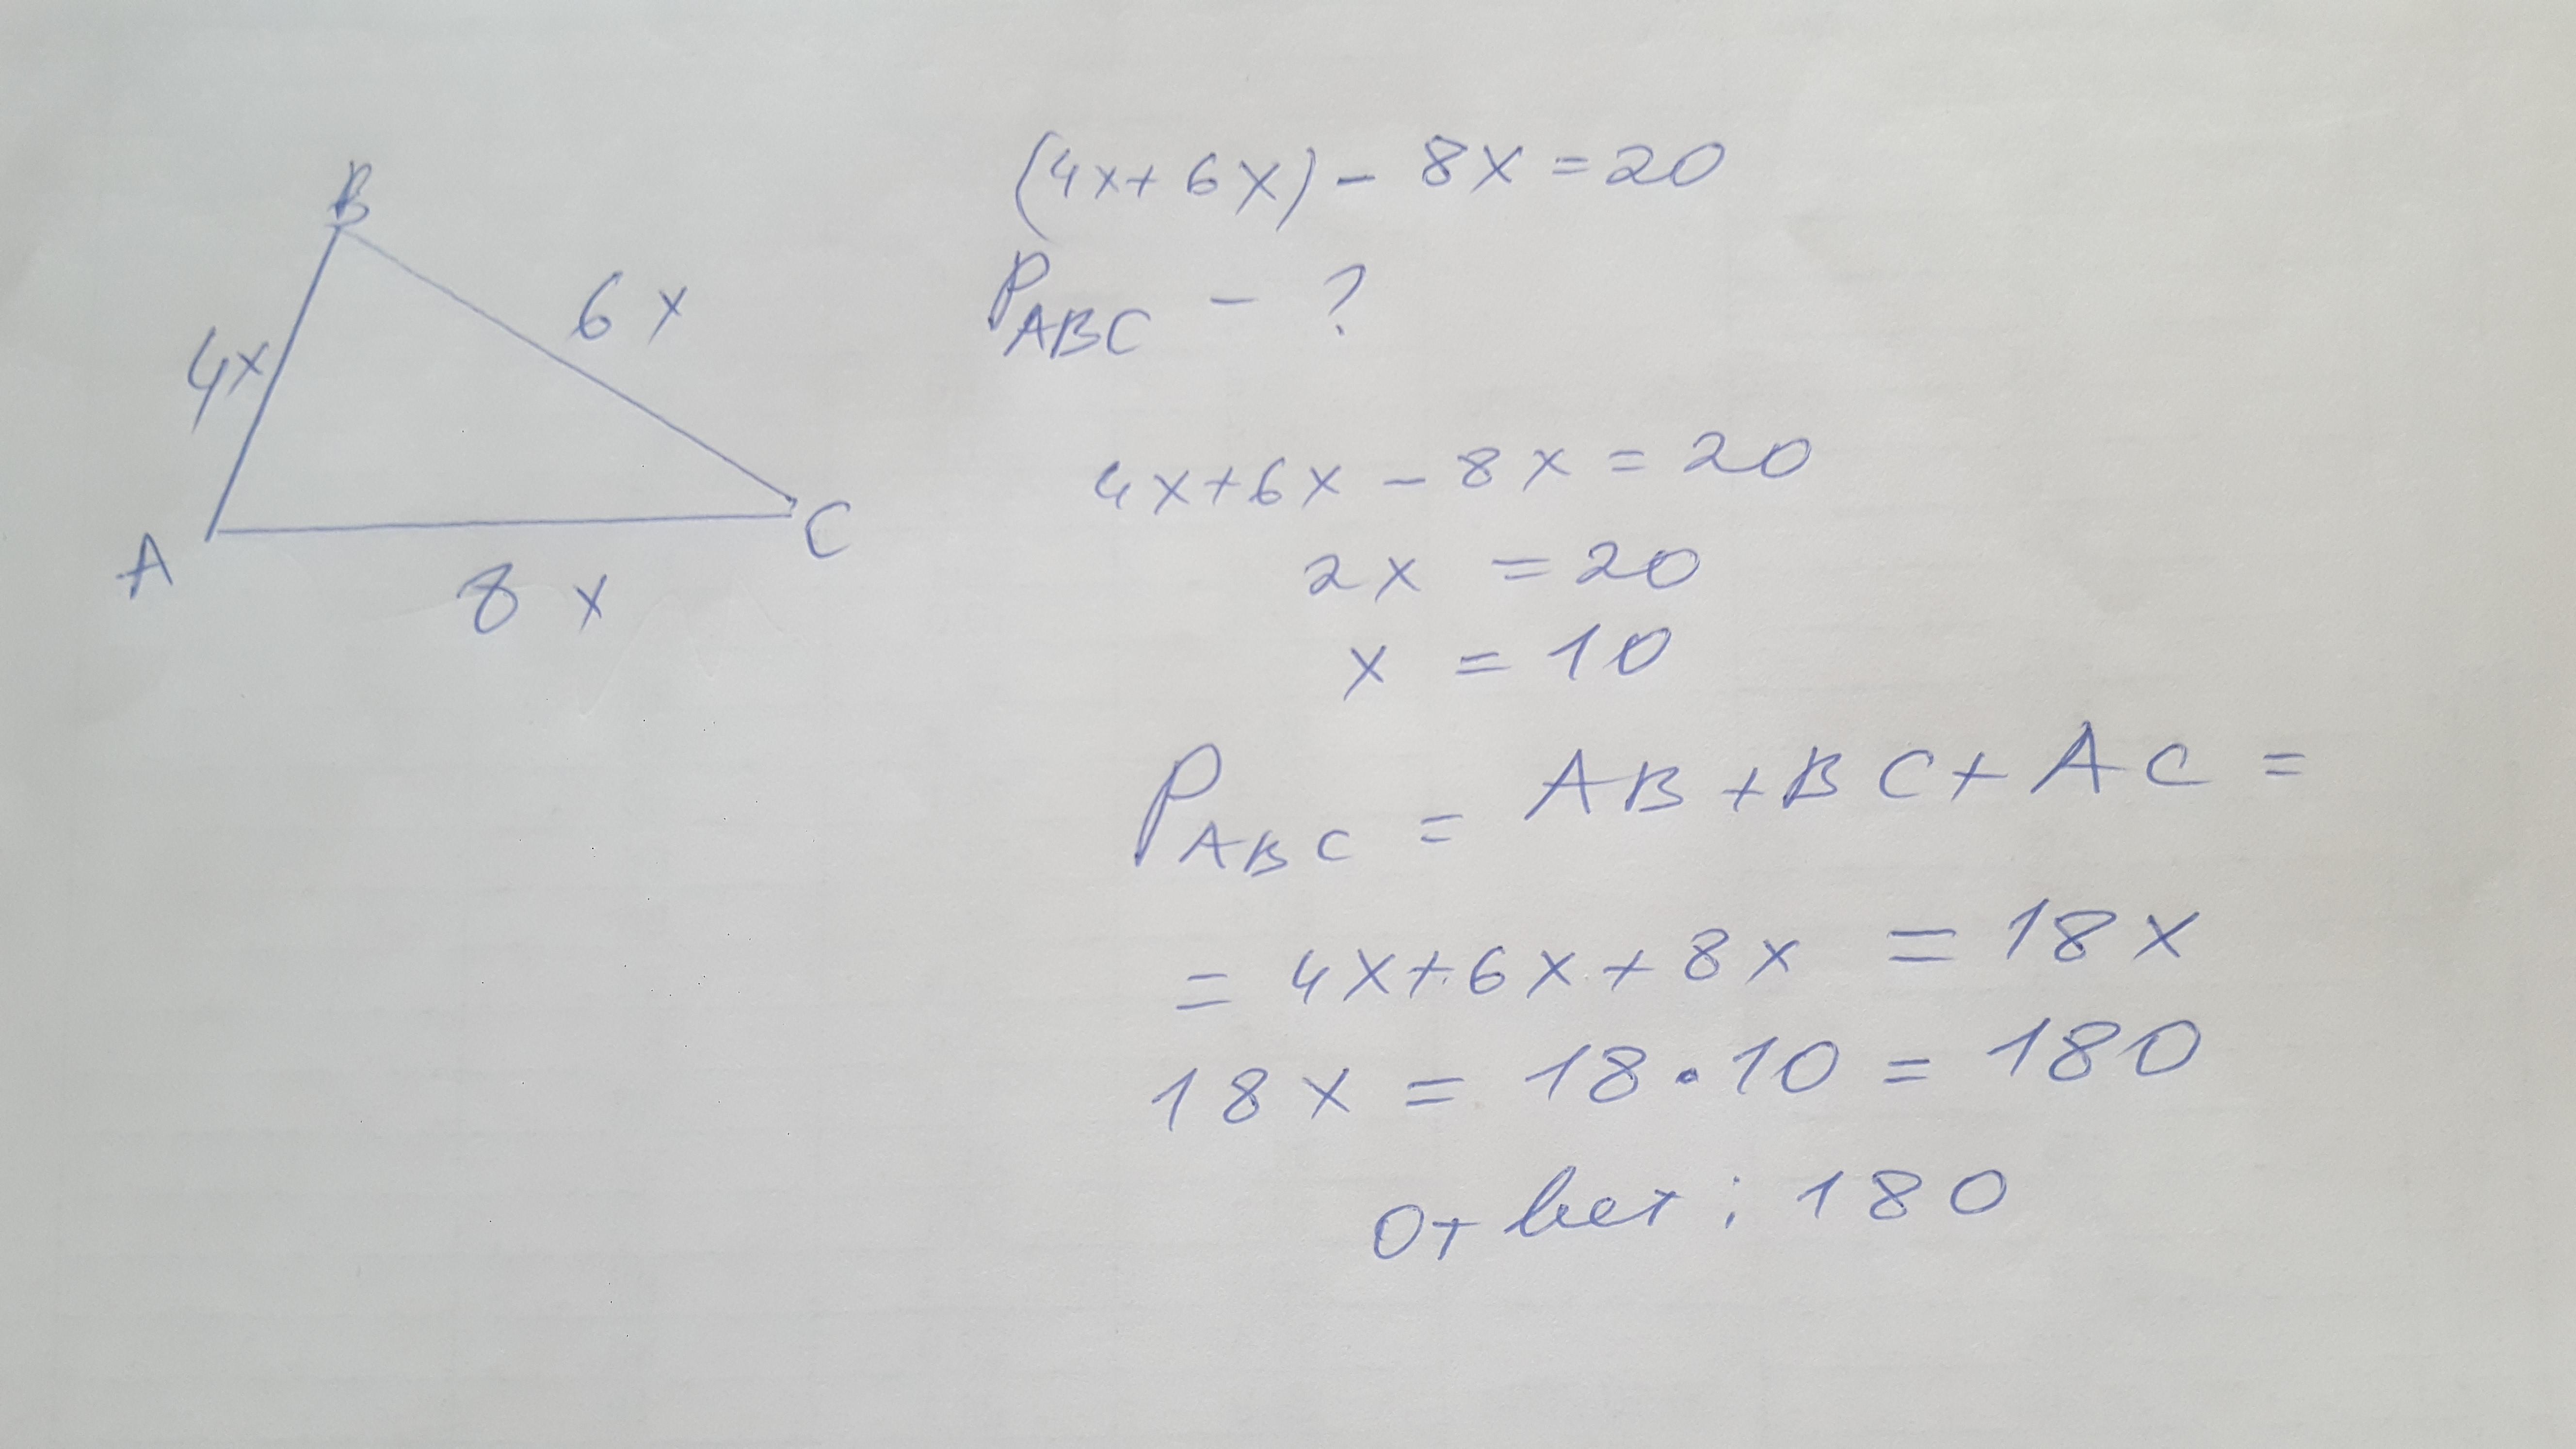 B
4x
6x
A
8x
C
(4x+6x) - 8x = 20
P_ABC - ?
4x+6x - 8x = 20
2x = 20
x = 10
P_ABC = AB+BC+AC =
= 4x+6x+8x = 18x
18x = 18·10 = 180
Ответ: 180